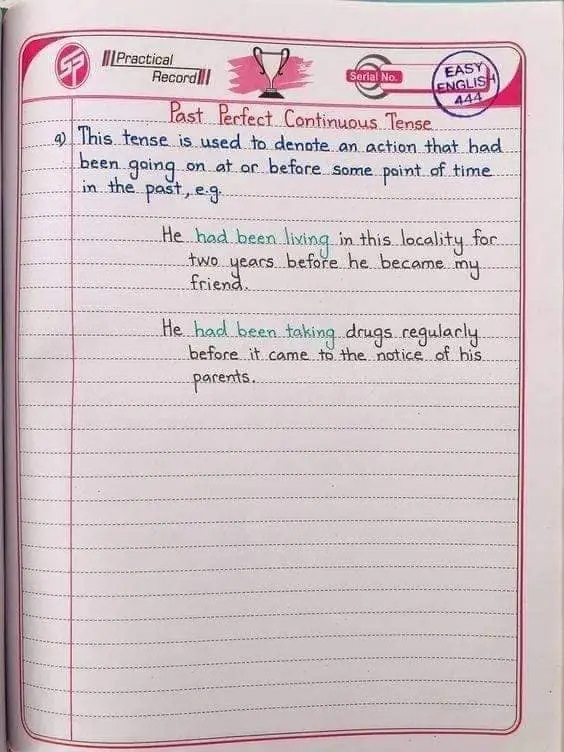 SP
Practical
Record
Serial No.
EASY
ENGLISH
444
Past Perfect Continuous Tense
a) This tense is used to denote an action that had
been going on at or before some point of time
in the past, e.g.
He had been living in this locality for
two years before he became my
friend.
He had been taking drugs regularly
before it came to the notice of his
parents.